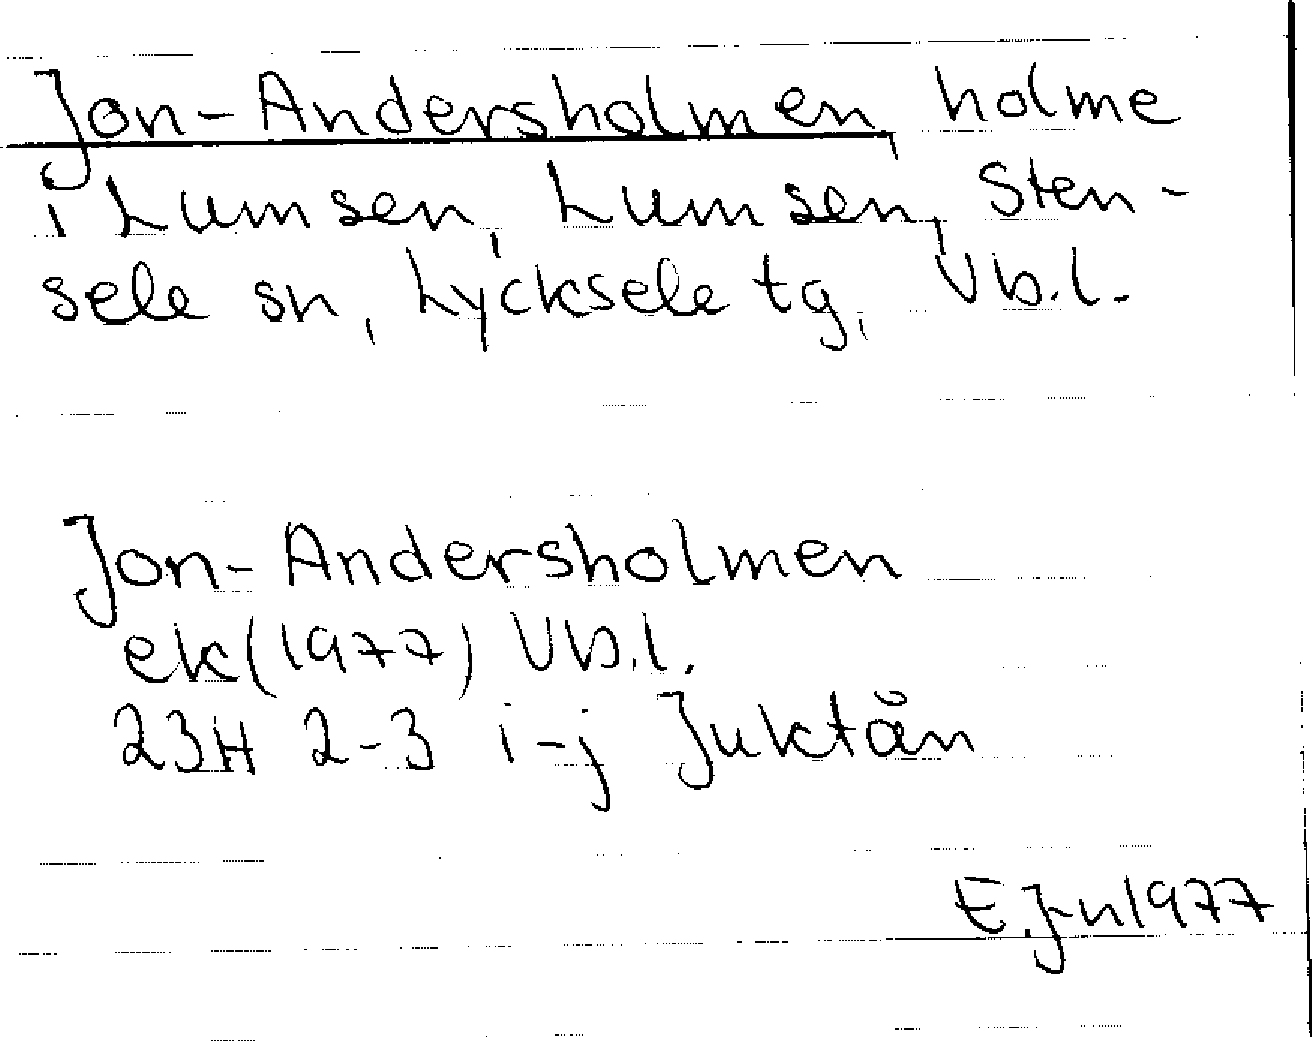 Jon-Andersholmen, holme
i Lumsen, Lumsen, Sten-
sele sn, Lycksele tg, Vb.l.
Jon-Andersholmen
ek(1977) Vb.l.
23H 2-3 i-j Juktån
E.J-n 1977